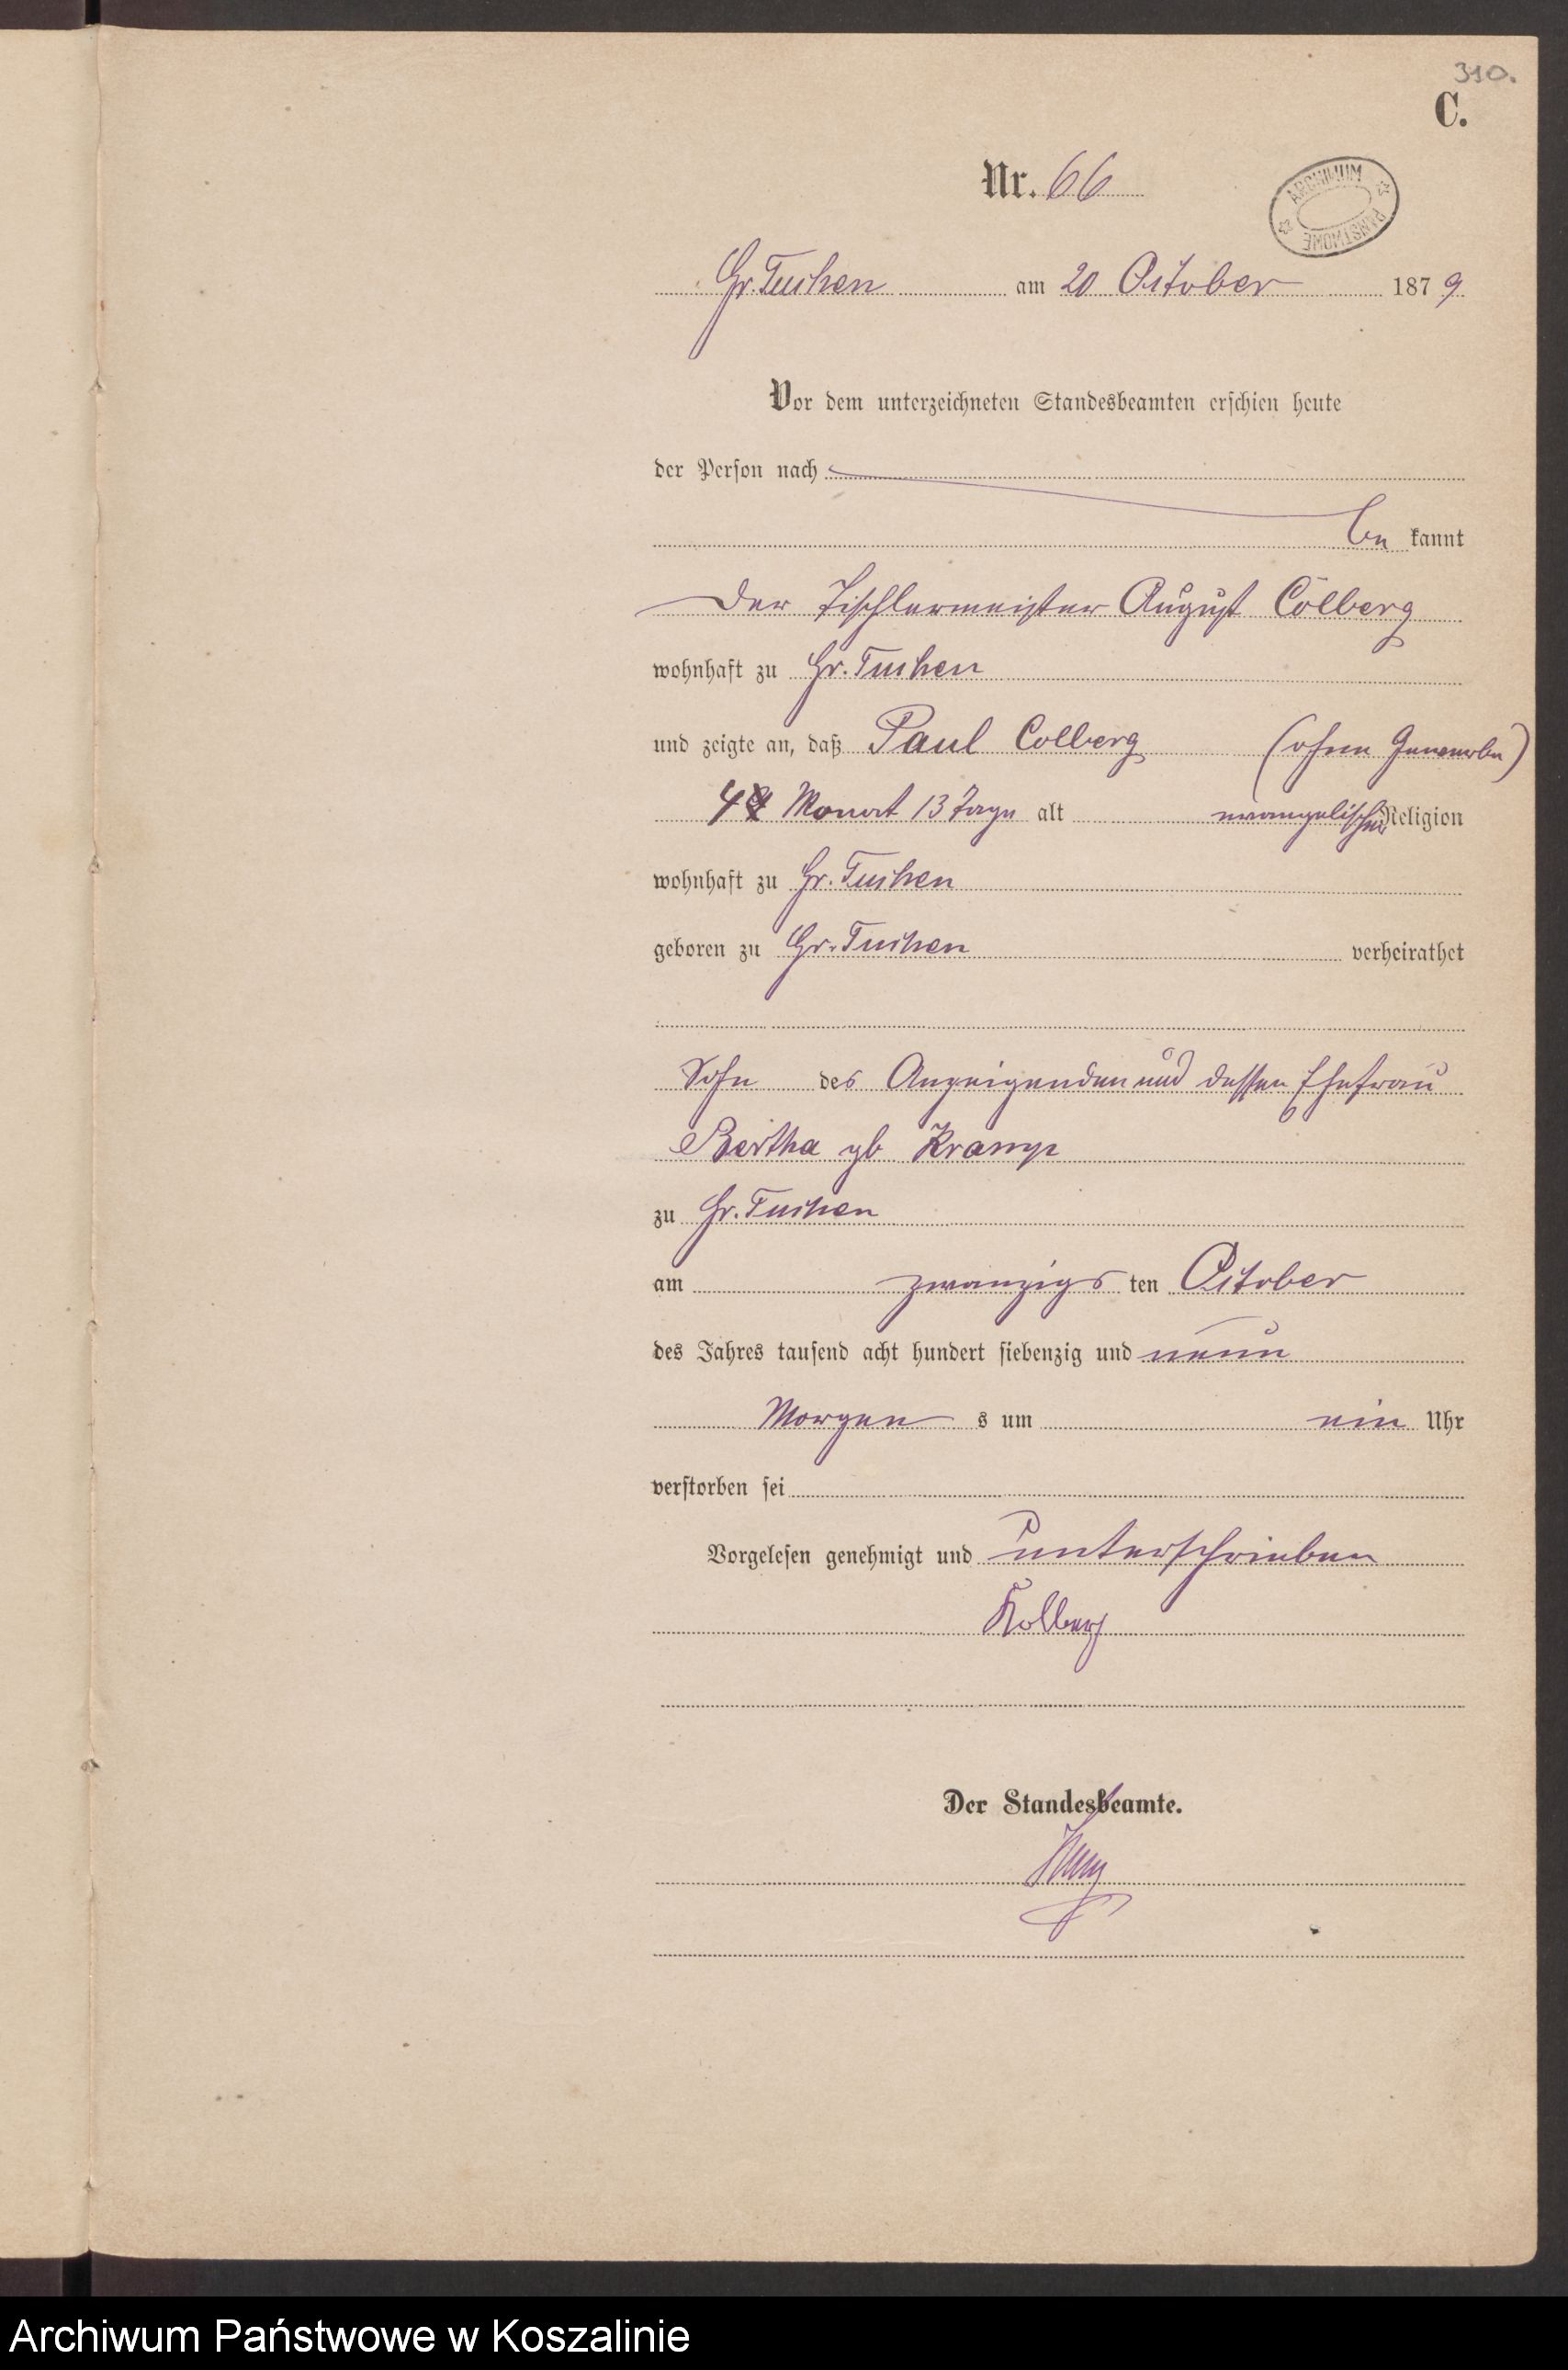 310.
C.
Nr. 66
ARCHIWUM PAŃSTWOWE
Gr. Tuchen am 20 October 1879
Vor dem unterzeichneten Standesbeamten erschien heute
der Person nach
be kannt
der Tischlermeister August Colberg
wohnhaft zu Gr. Tuchen
und zeigte an, daß Paul Colberg (ohne Gewerbe)
4 Monat 13 Tage alt evangelischer Religion
wohnhaft zu Gr. Tuchen
geboren zu Gr. Tuchen verheirathet
Sohn des Anzeigenden und dessen Ehefrau
Bertha gb Kramp
zu Gr. Tuchen
am zwanzigsten October
des Jahres tausend acht hundert siebenzig und neun
Morgens um ein Uhr
verstorben sei
Vorgelesen genehmigt und unterschrieben
Kolberg
Der Standesbeamte.
Archiwum Państwowe w Koszalinie